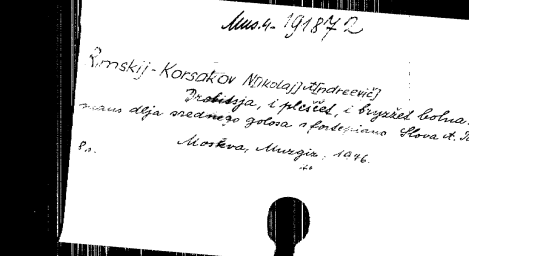 Mus.4-191872
Rimskij-Korsakov N[ikolaj] A[ndreevič]
Drobitsja, i pleščet, i bryzžet bolna.
mans dlja srednego golosa s fortepiano Slova A.
Moskva, Muzgiz, 1946.
8 s.